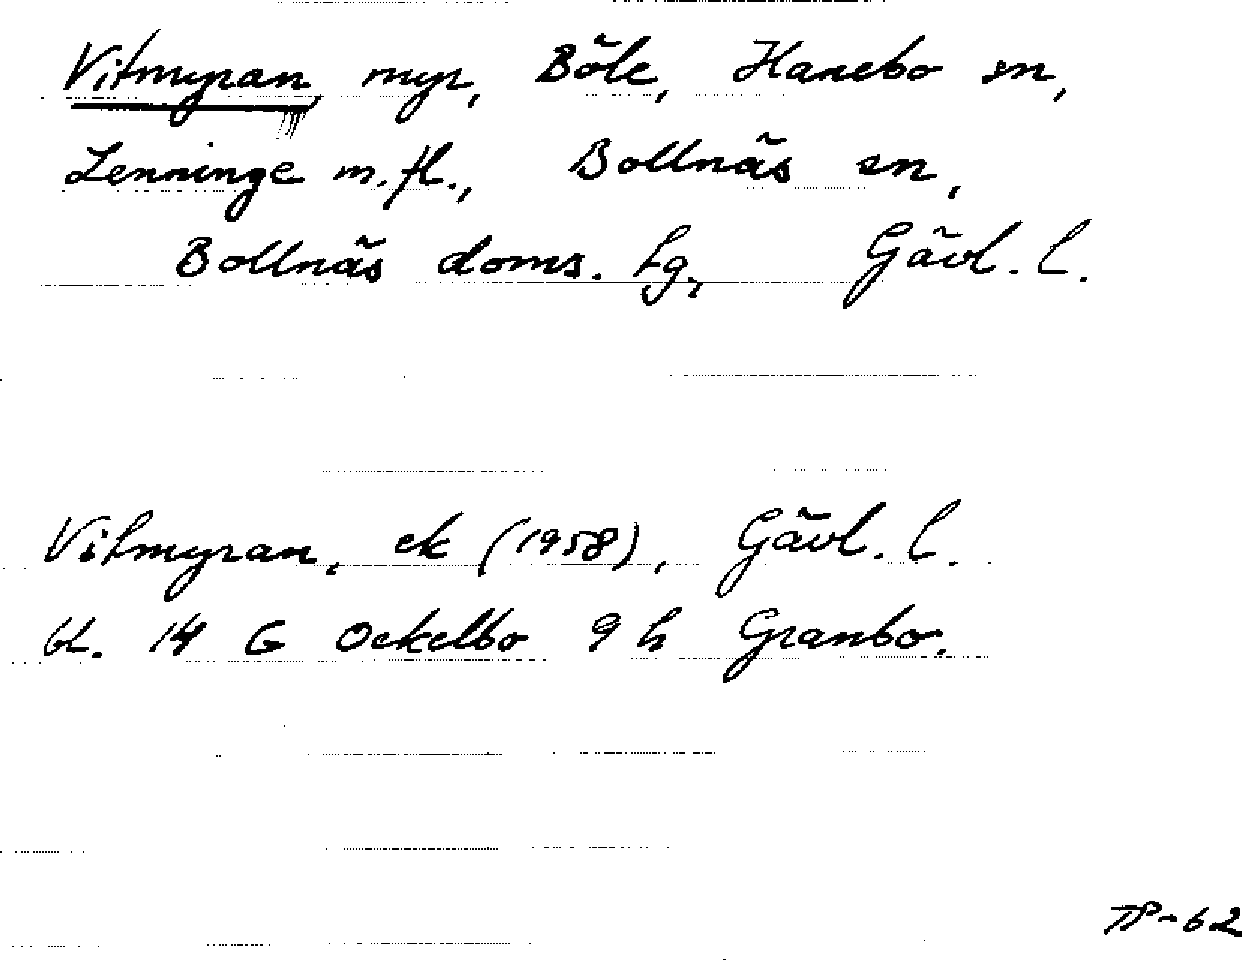 Vitmyran myr, Böle, Hanebo sn,
Lenninge m.fl., Bollnäs sn,
Bollnäs doms. hg, Gävl. l.
Vitmyran, ek (1958), Gävl. l.
bl. 14 G Ockelbo 9 h Granbo.
TP-62